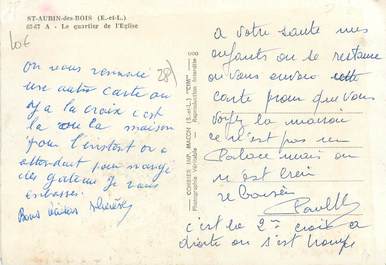 ST-AUBIN-des-BOIS (E.-et-L.)
65-67 A - Le quartier de l'Eglise
on vous renvoie
une autre carte ou
il y a la croix c'est
la la maison
pour l'instant on
attendant pour manger
des gateau Je vous
embrasse.
Bons
COMBIER IMP. MACON (S.-et-L.) "CIM"
Photographie Véritable - Reproduction Interdite
a votre santé mes
enfants on se restaure
on vous envoie cette
carte pour que vous
voyez la maison
ce n'est pas un
Palace mais on
n'est bien
Paul
c'est la 2e croix a
droite on s'est trompé